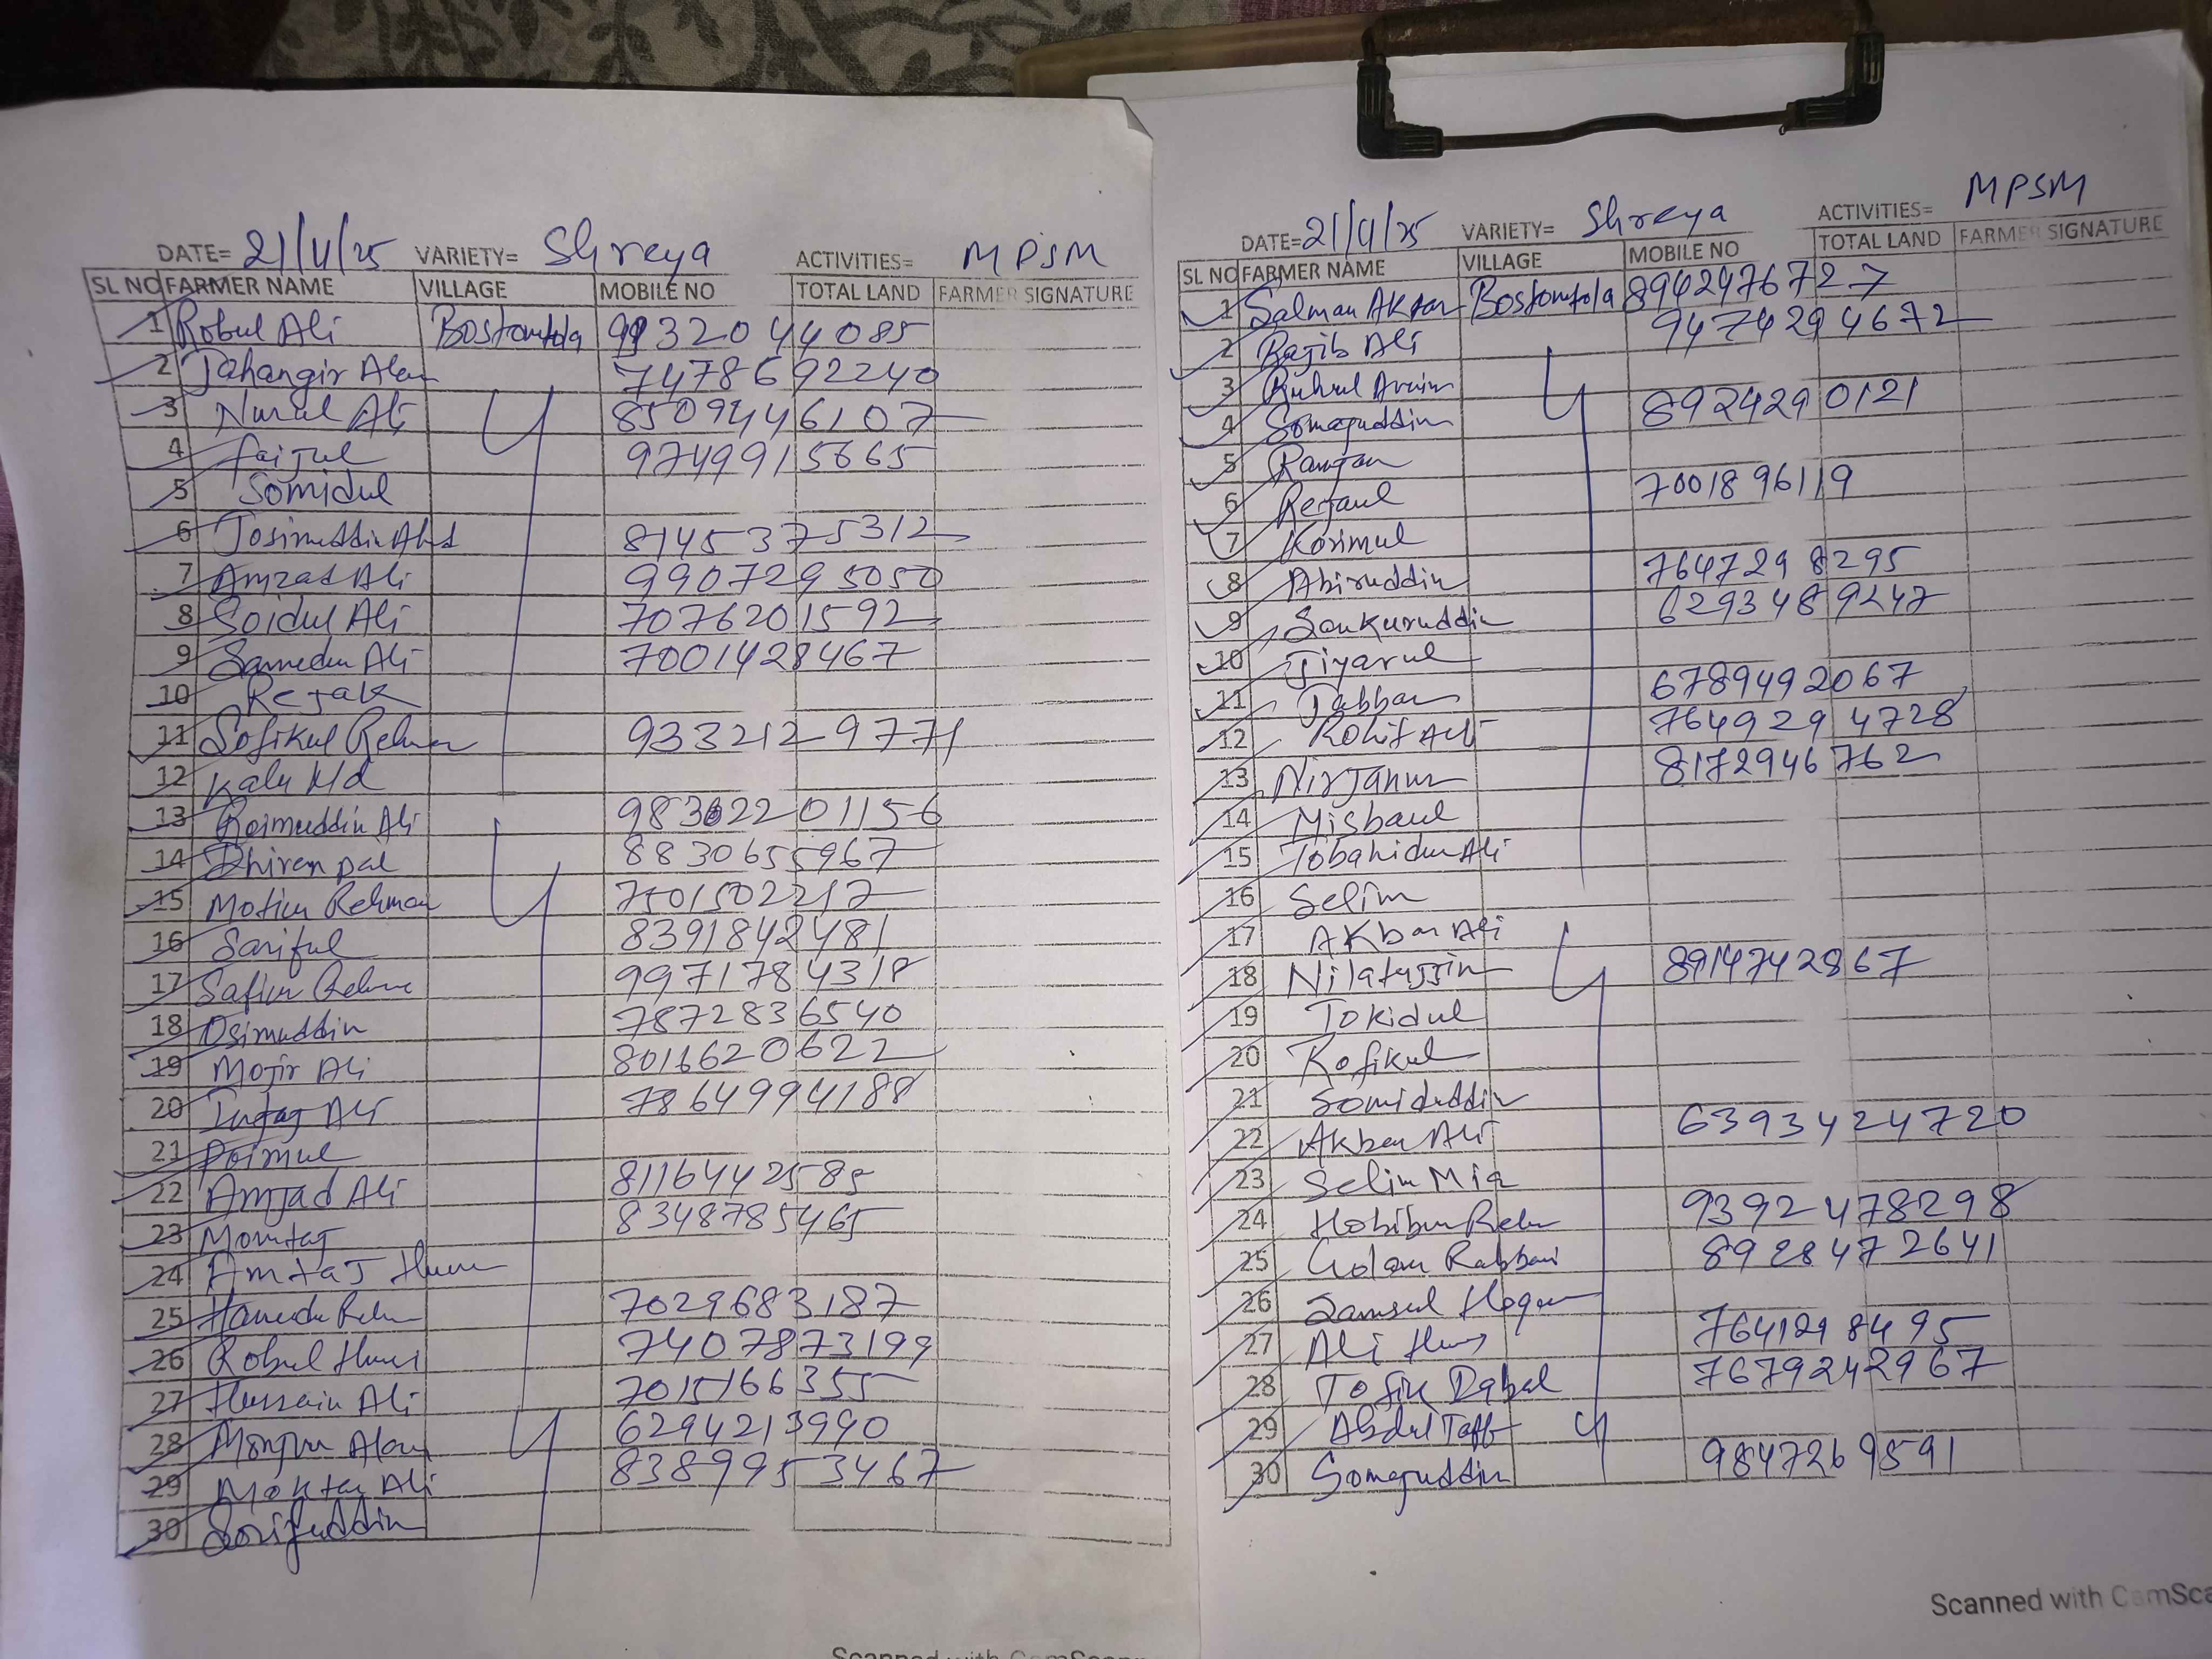 DATE= 21/4/25 VARIETY= Shreya ACTIVITIES= MPSM
SL NO FARMER NAME VILLAGE MOBILE NO TOTAL LAND FARMER SIGNATURE
1 Robul Ali Bostomtola 9932044085
2 Jahangir Alam 7478692240
3 Nurul Ali 8509446107
4 Faijul 9749915665
5 Somidul
6 Josimuddin Ahd 8145375312
7 Amzad Ali 9907295050
8 Soidul Ali 7076201592
9 Samedur Ali 7001428467
10 Rejak
11 Sofikul Rehman 9332129771
12 Kalu Md
13 Roimuddin Ali
14 Dhiren pal 8830655967
15 Motiur Rehman 7501502217
16 Sariful 8391842481
17 Safiur Rehme 9971784318
18 Osimuddin 7872836540
19 Mojir Ali 8016620622
20 Intaj Ali 7864994188
21 Poimul
22 Amjad Ali 8116442585
23 Momtaj 8348785465
24 Amtaj
25 7029683187
26 Robul 7407873199
27 Hussain Ali 7015166355
28 Monjur Alam 6294213990
29 Moktar Ali 8389953467
30 Sorifuddin
Scanned with CamScanner
DATE= 21/4/25 VARIETY= Shreya ACTIVITIES= MPSM
SL NO FARMER NAME VILLAGE MOBILE NO TOTAL LAND FARMER SIGNATURE
1 Salman Aktar Bostomtola 8942476727
2 Rajib Ali 9474294672
3 Ruhul
4 Somajuddin 8924290121
5 Ramjan
6 Rejaul 7001896119
7 Korimul
8 Abiruddin 7647298295
9 Soukuruddin 6293489247
10 Jiyarul
11 Jabbar 6789492067
12 Rohit 7649294728
13 Nirjanur 8172946762
14 Misbaul
15 Tobahidur Ali
16 Selim
17 Akbar Ali
18 8914742867
19 Tokidul
20 Rofikul
21 Somiduddin
22 Akbar Ali 6393424720
23 Selim Mia
24 Hobibur Rehm 9392478298
25 Golam Rabbani 8928472641
26 Samsul Hoque
27 Ali 7641298495
28 Tofik Iqbal 7679242967
29 Abdul
30 Somajuddin 9847269591
Scanned with CamSca